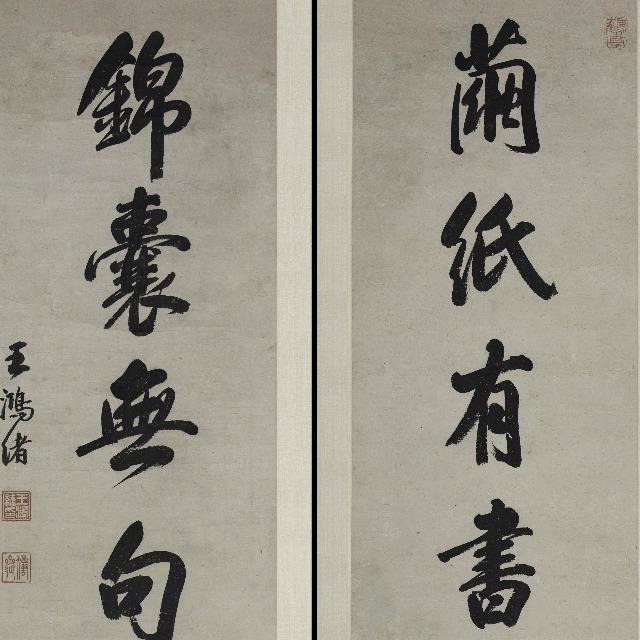 繭紙有書
錦囊無句
王鴻緒